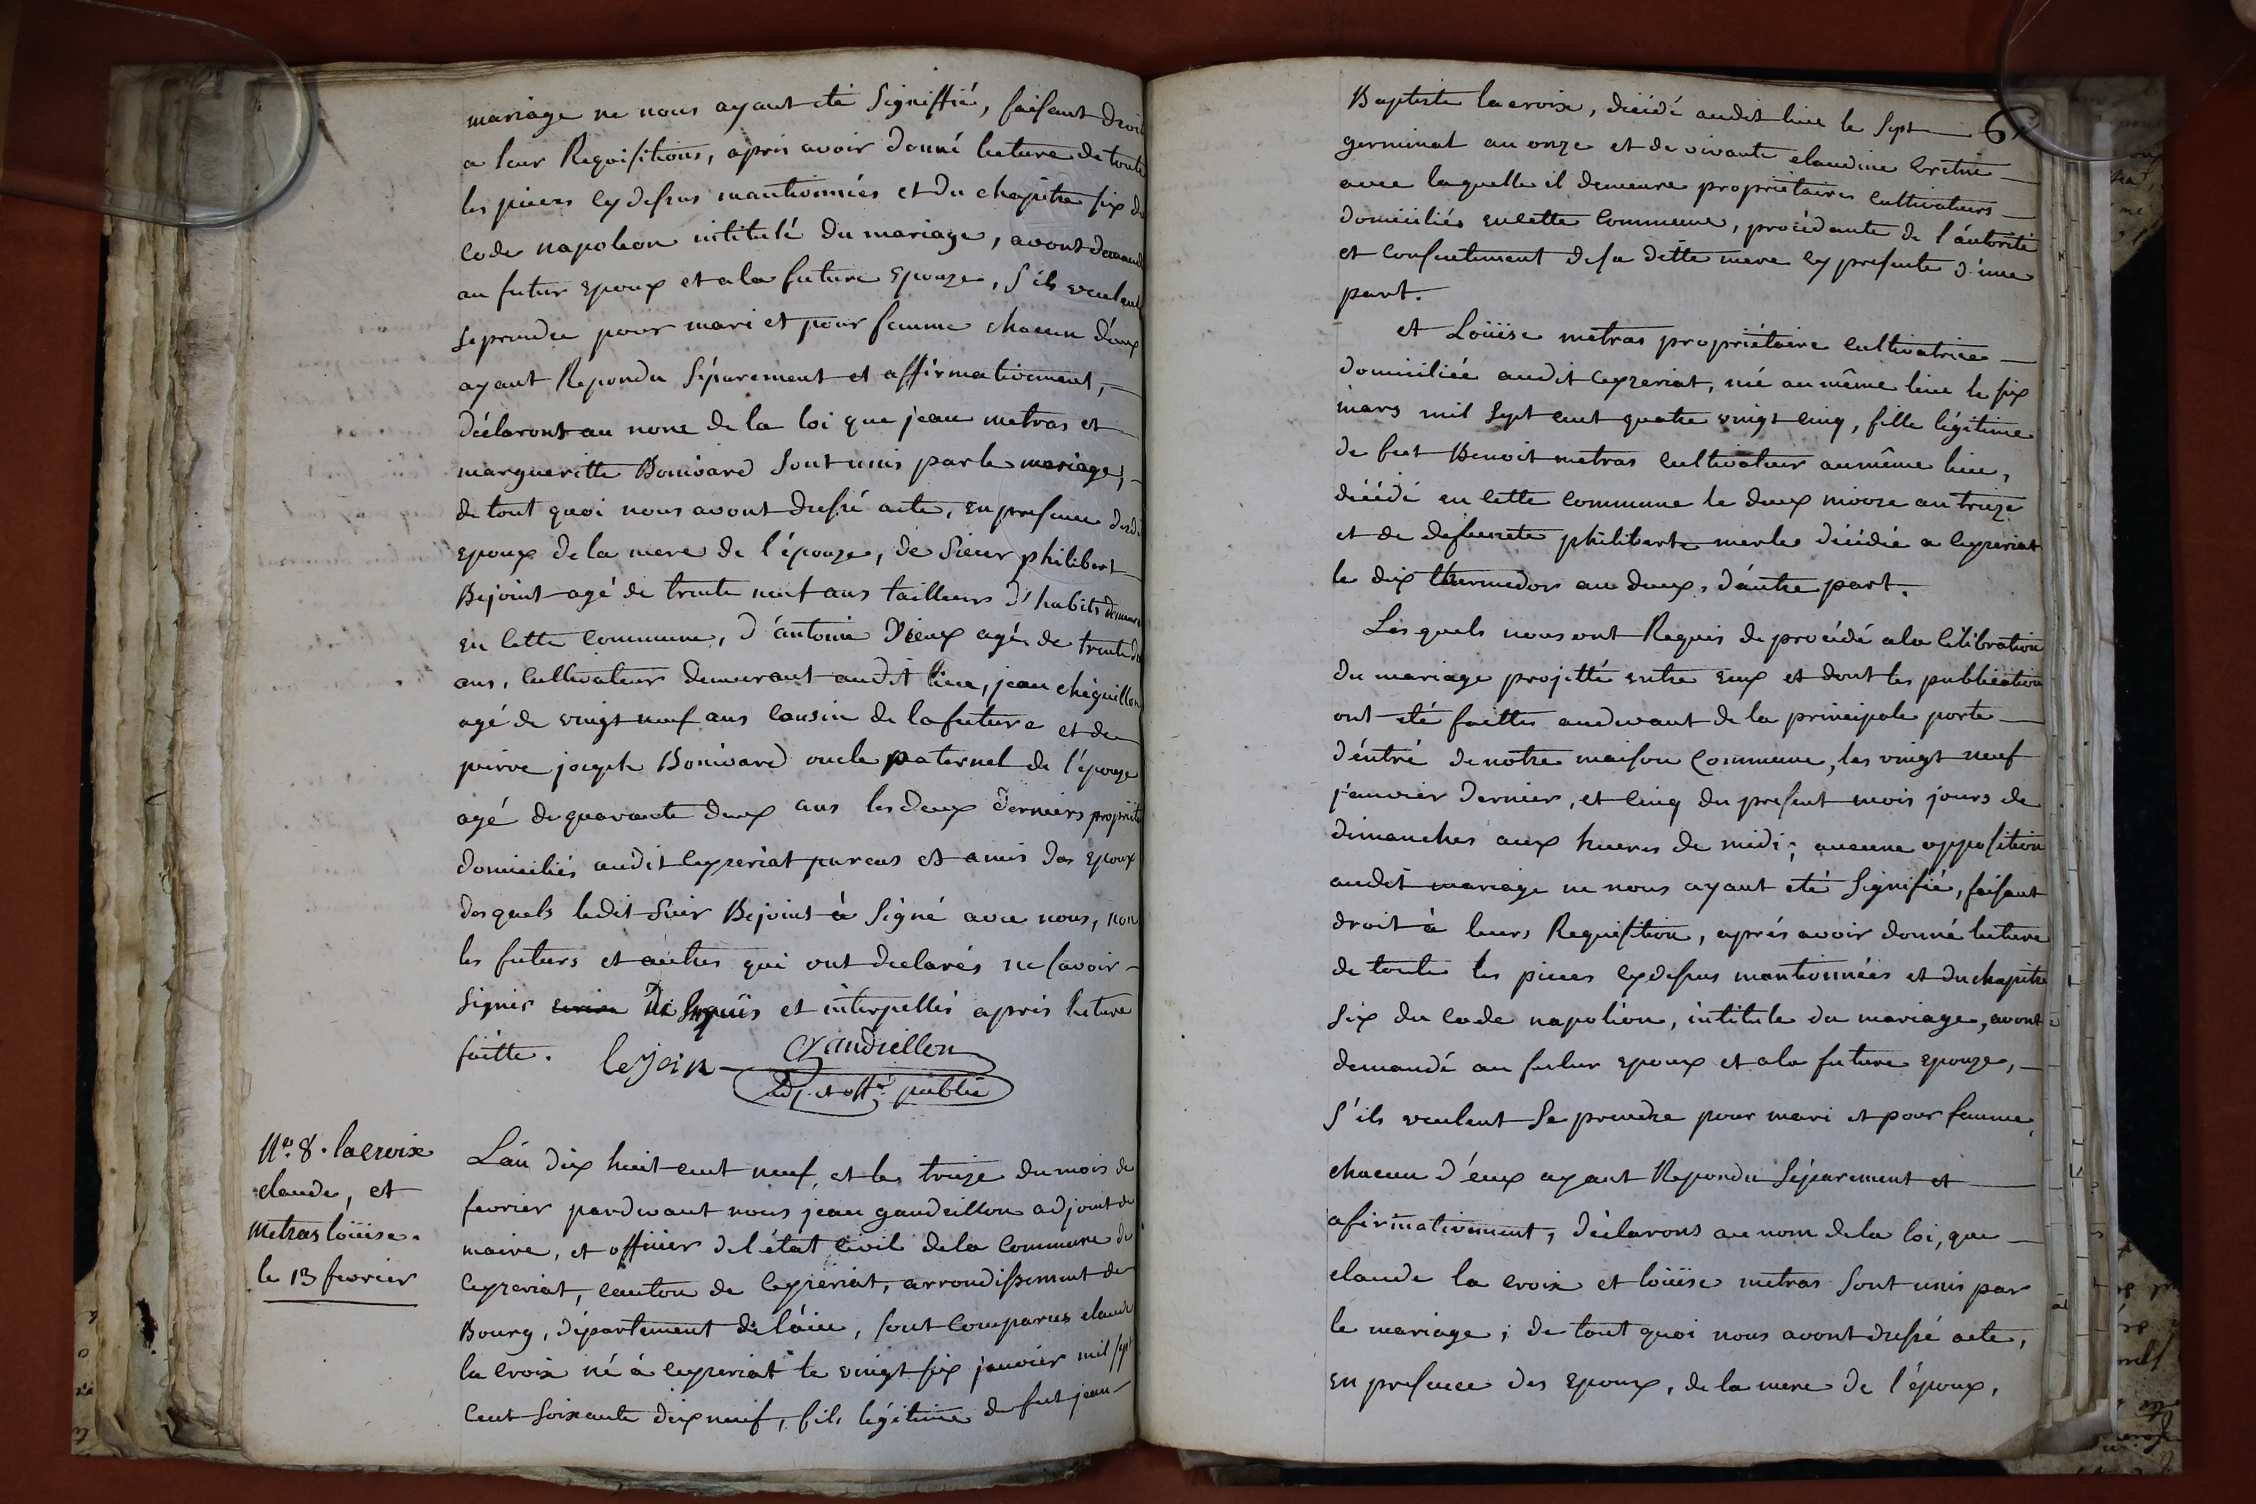 mariage ne nous ayant eté Signiffié, faisant droit
a leur Requisitions, apris avoir donné lecture de toute
les pieces cy dessus mantionnées et du chapitre six du
code napoleon intitulé du mariage, avont demandé
au futur epoux et a la future epouze, s'ils veulent
se prendre pour mari et pour femme chacun d'eux
ayant Repondu Séparement et affirmativement,
déclaront au nom de la loi que jean metras et
margueritte Bonivard Sont unis par le mariage,
de tout quoi nous avont dressé acte, en presence desd.
epoux de la mere de l'épouze, de Sieur philibert
Bejoint agé de trente neuf ans tailleurs d'habits demeurt
en cette commune, d'antoine Vieux agé de trente
ans, cultivateur demeurant audit lieu, jean cheguillon
agé de vingt neuf ans cousin de la future et de
pierre joseph Bonivard oncle paternel de l'épouze
agé de quarante deux ans les deux derniers propriét
domiciliés audit ceyzeriat parens et amis des epoux
desquels ledit Sieur Bejoint à Signé avec nous, non
les futurs et autres qui ont declarés ne savoir
Signer de Requis et interpellés apris lecture
faitte. lejoin Gandiellon
adj. et offr. public
No. 8. lacroix
claude, et
metras loüise.
le 13 fevrier
L'an dix huit cent neuf, et le treize du mois de
fevrier pardevant nous jean gandeillon adjoint de
maire, et officier de l'état civil de la commune de
ceyzeriat, canton de ceyzeriat, arrondissement de
Bourg, département de l'ain, sont comparus claude
la croix né à ceyzeriat le vingt six janvier mil sept
cent soixante dix neuf, fils légitime de fut jean
6
Baptiste lacroix, décédé audit lieu le Sept
germinal an onze et de vivante claudine
avec laquelle il demeure propriétaires cultivateurs
domiciliés en cette commune, procédante de l'autorité
et consentement de sa ditte mere cy presente d'une
part.
et Loüise metras propriétaire cultivatrice
domiciliée audit ceyzeriat, né au même lieu le six
mars mil sept cent quatre vingt cinq, fille légitime
de feut Benoit metras cultivateur au même lieu,
décédé en cette commune le deux nivoze an treize
et de defuncte philiberte merle décédée a ceyzeriat
le dix thermidor an deux, d'autre part.
Les quels nous ont Requis de procédé a la célébration
du mariage projetté entre eux et dont les publication
ont eté faittes audevant de la principale porte
d'entré de notre maison commune, les vingt neuf
janvier dernier, et cinq du present mois jours de
dimanches aux heures de midi; aucune opposition
audit mariage ne nous ayant eté Signifié, faisant
droit à leurs Requisition, aprés avoir donné lecture
de toute les pieces cy dessus mantionnées et du chapitre
Six du code napoléon, intitulé du mariage, avont
demandé au futur epoux et a la future epouze,
s'ils veulent Se prendre pour mari et pour femme,
chacun d'eux ayant Repondu Séparement et
afirmativement, déclaront au nom de la loi, que
claude la croix et loüise metras Sont unis par
le mariage; de tout quoi nous avont dressé acte,
en presence des epoux, de la mere de l'époux,